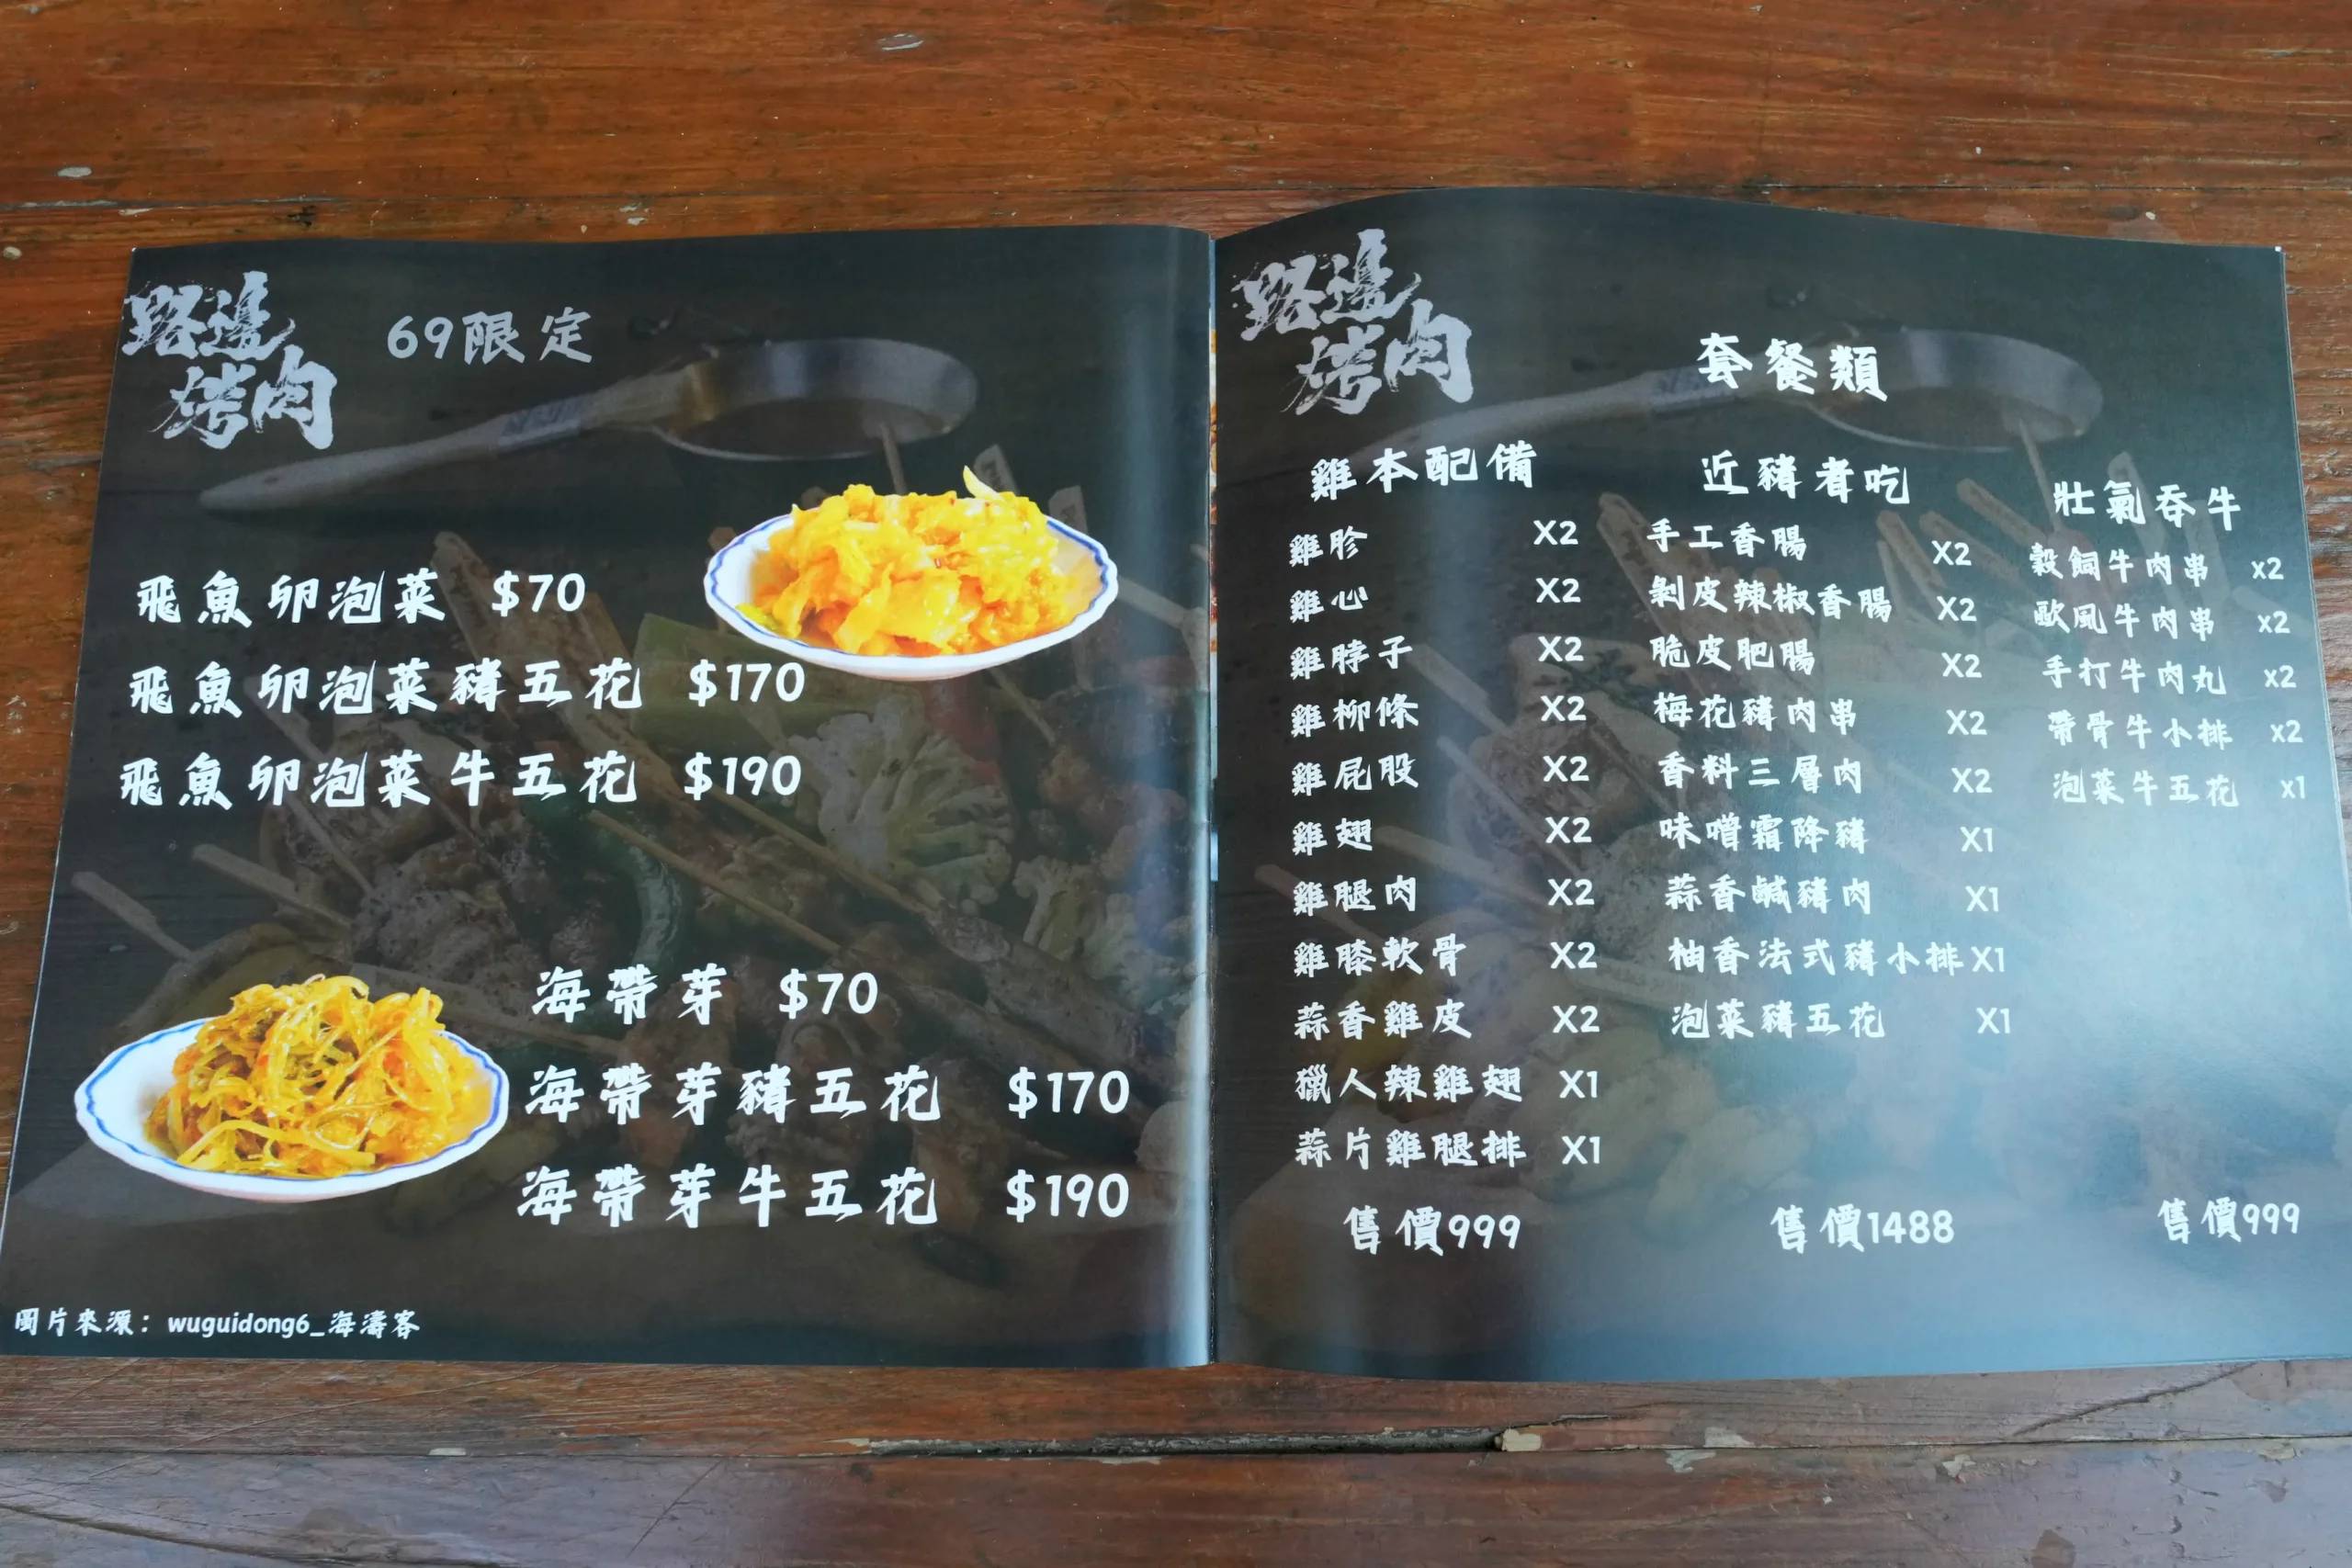 路邊
烤肉
69限定
飛魚卵泡菜 $70
飛魚卵泡菜豬五花 $170
飛魚卵泡菜牛五花 $190
海帶芽 $70
海帶芽豬五花 $170
海帶芽牛五花 $190
圖片來源：wuguidong6_海濤客
路邊
烤肉
套餐類
雞本配備
雞胗 X2
雞心 X2
雞脖子 X2
雞柳條 X2
雞屁股 X2
雞翅 X2
雞腿肉 X2
雞膝軟骨 X2
蒜香雞皮 X2
獵人辣雞翅 X1
蒜片雞腿排 X1
售價999
近豬者吃
手工香腸 X2
剝皮辣椒香腸 X2
脆皮肥腸 X2
梅花豬肉串 X2
香料三層肉 X2
味噌霜降豬 X1
蒜香鹹豬肉 X1
柚香法式豬小排 X1
泡菜豬五花 X1
售價1488
壯氣吞牛
穀飼牛肉串 x2
歐風牛肉串 x2
手打牛肉丸 x2
帶骨牛小排 x2
泡菜牛五花 x1
售價999